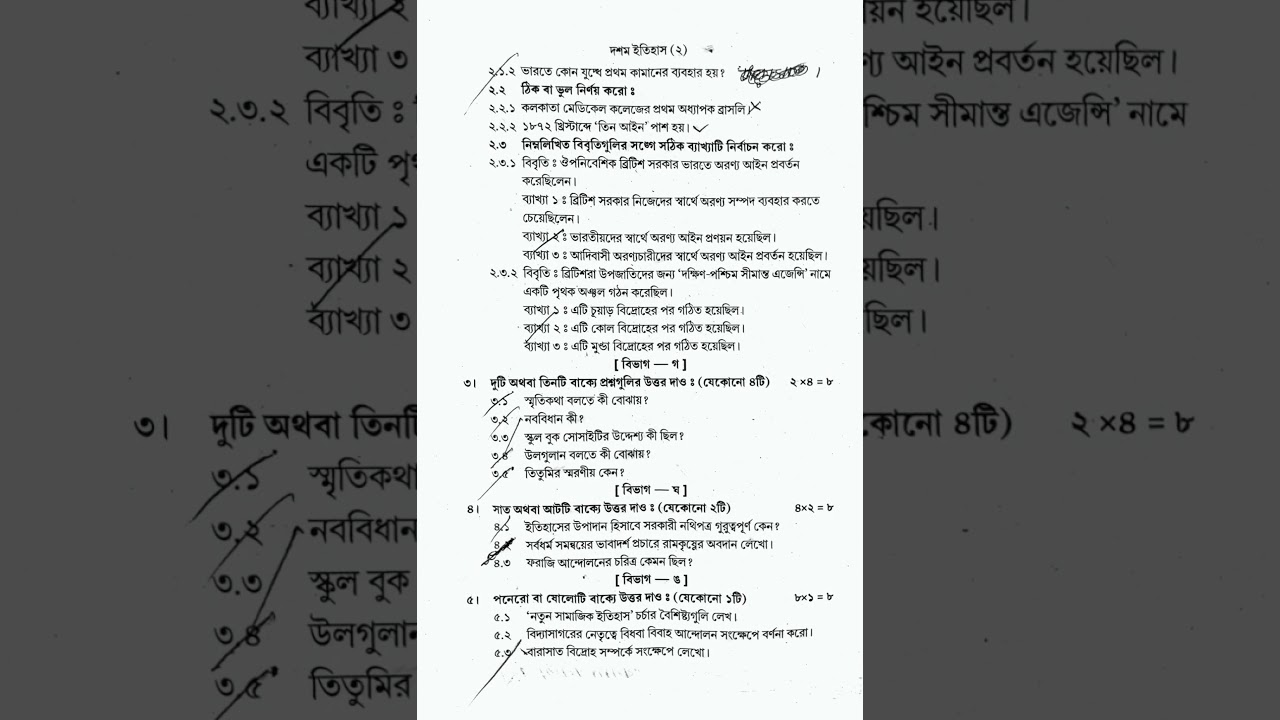 দশম ইতিহাস (২)
২.১.২ ভারতে কোন যুদ্ধে প্রথম কামানের ব্যবহার হয়?
২.২ ঠিক বা ভুল নির্ণয় করো ঃ
২.২.১ কলকাতা মেডিকেল কলেজের প্রথম অধ্যাপক ব্রাসলি।
২.২.২ ১৮৭২ খ্রিস্টাব্দে ‘তিন আইন’ পাশ হয়।
২.৩ নিম্নলিখিত বিবৃতিগুলির সঙ্গে সঠিক ব্যাখ্যাটি নির্বাচন করো ঃ
২.৩.১ বিবৃতি ঃ ঔপনিবেশিক ব্রিটিশ সরকার ভারতে অরণ্য আইন প্রবর্তন
করেছিলেন।
ব্যাখ্যা ১ ঃ ব্রিটিশ সরকার নিজেদের স্বার্থে অরণ্য সম্পদ ব্যবহার করতে
চেয়েছিলেন।
ব্যাখ্যা ২ ঃ ভারতীয়দের স্বার্থে অরণ্য আইন প্রণয়ন হয়েছিল।
ব্যাখ্যা ৩ ঃ আদিবাসী অরণ্যচারীদের স্বার্থে অরণ্য আইন প্রবর্তন হয়েছিল।
২.৩.২ বিবৃতি ঃ ব্রিটিশরা উপজাতিদের জন্য ‘দক্ষিণ-পশ্চিম সীমান্ত এজেন্সি’ নামে
একটি পৃথক অঞ্চল গঠন করেছিল।
ব্যাখ্যা ১ ঃ এটি চুয়াড় বিদ্রোহের পর গঠিত হয়েছিল।
ব্যাখ্যা ২ ঃ এটি কোল বিদ্রোহের পর গঠিত হয়েছিল।
ব্যাখ্যা ৩ ঃ এটি মুন্ডা বিদ্রোহের পর গঠিত হয়েছিল।
[ বিভাগ — গ ]
৩। দুটি অথবা তিনটি বাক্যে প্রশ্নগুলির উত্তর দাও ঃ (যেকোনো ৪টি) ২ ×৪ = ৮
৩.১ স্মৃতিকথা বলতে কী বোঝায়?
৩.২ নববিধান কী?
৩.৩ স্কুল বুক সোসাইটির উদ্দেশ্য কী ছিল?
৩.৪ উলগুলান বলতে কী বোঝায়?
৩.৫ তিতুমির স্মরণীয় কেন?
[ বিভাগ — ঘ ]
৪। সাত অথবা আটটি বাক্যে উত্তর দাও ঃ (যেকোনো ২টি) ৪×২ = ৮
৪.১ ইতিহাসের উপাদান হিসাবে সরকারী নথিপত্র গুরুত্বপূর্ণ কেন?
৪.২ সর্বধর্ম সমন্বয়ের ভাবাদর্শ প্রচারে রামকৃষ্ণের অবদান লেখো।
৪.৩ ফরাজি আন্দোলনের চরিত্র কেমন ছিল?
[ বিভাগ — ঙ ]
৫। পনেরো বা ষোলোটি বাক্যে উত্তর দাও ঃ (যেকোনো ১টি) ৮×১ = ৮
৫.১ ‘নতুন সামাজিক ইতিহাস’ চর্চার বৈশিষ্ট্যগুলি লেখ।
৫.২ বিদ্যাসাগরের নেতৃত্বে বিধবা বিবাহ আন্দোলন সংক্ষেপে বর্ণনা করো।
৫.৩ বারাসাত বিদ্রোহ সম্পর্কে সংক্ষেপে লেখো।